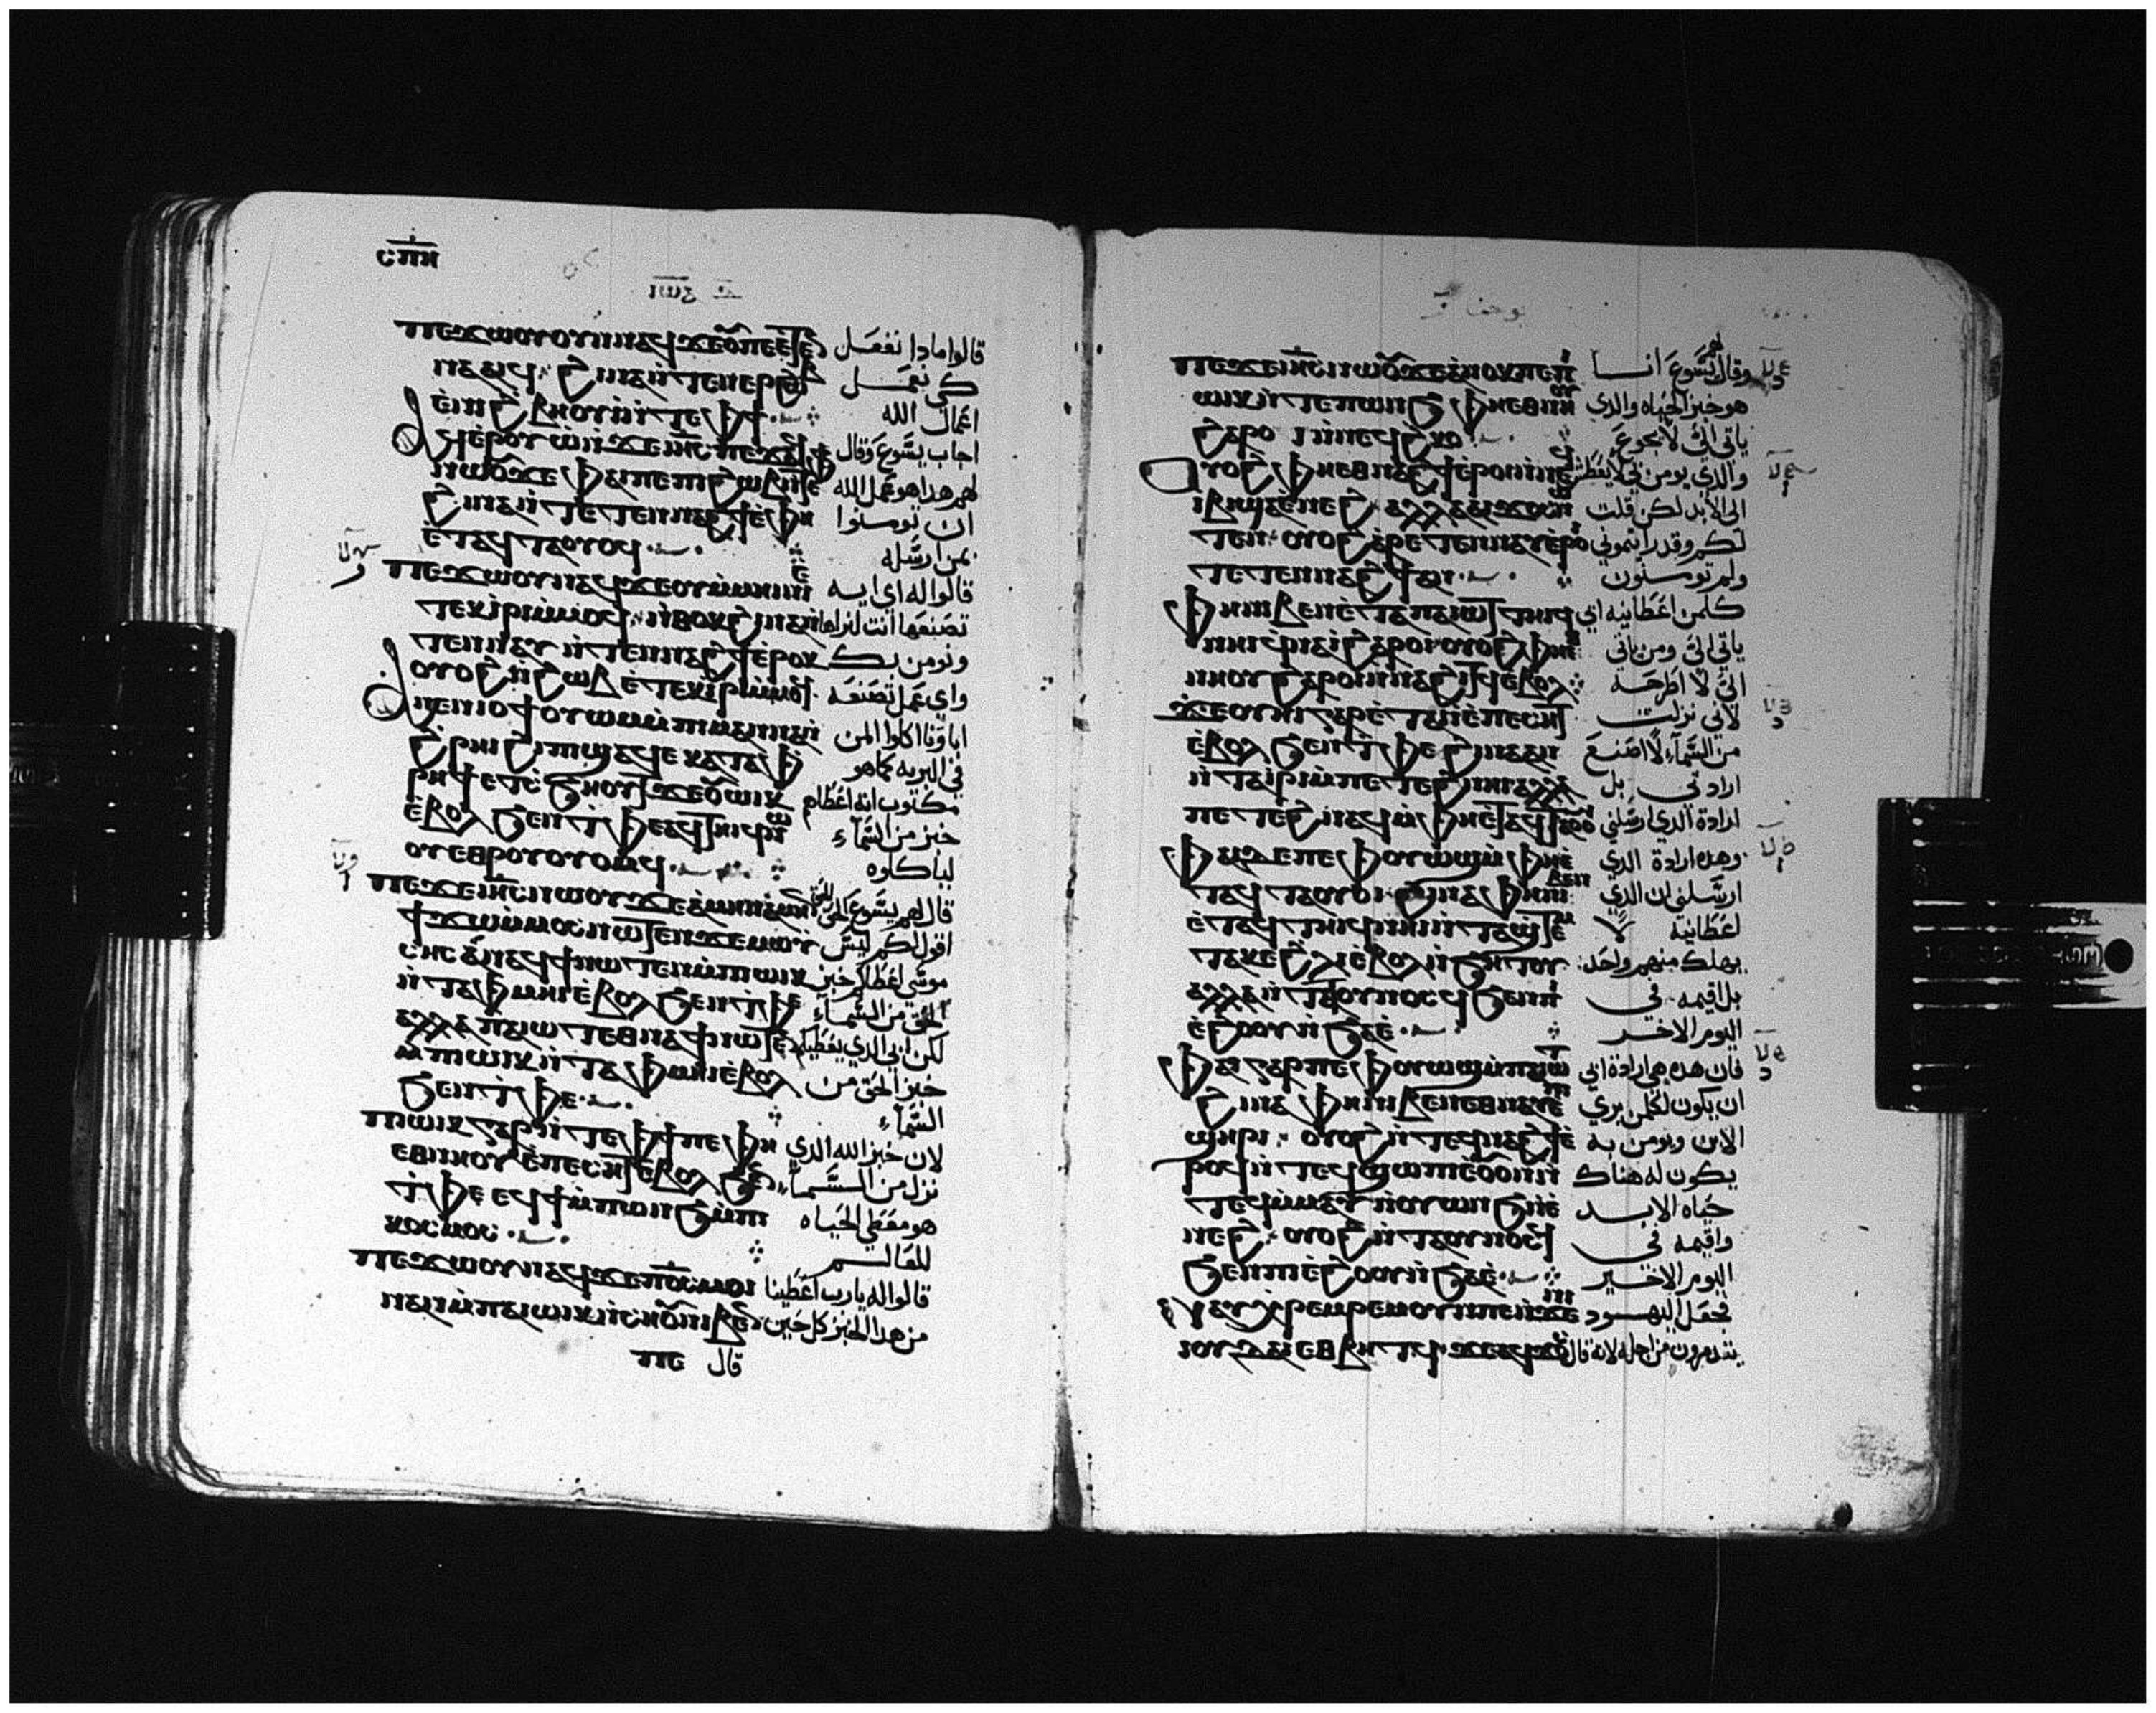 ⲥⲡⲏ
ⲓⲱⲁ
ⲡⲉϫⲱⲟⲩ ⲟⲩⲛ ⲛⲁϥ ϫⲉ ⲟⲩ ⲡⲉ ⲉⲧⲉ
ⲛⲛⲁⲁⲓϥ ϩⲓⲛⲁ ⲛⲧⲉⲛⲉⲣϩⲱⲃ
ⲉⲛⲓϩⲃⲏⲟⲩⲓ ⲛⲧⲉ ⲫϯ
ⲁϥⲉⲣⲟⲩⲱ ⲛϫⲉ ⲓⲏⲥ ⲡⲉϫⲁϥ
ⲛⲱⲟⲩ ϫⲉ ⲫⲁⲓ ⲡⲉ ⲡϩⲱⲃ ⲛⲧⲉ ⲫϯ
ϩⲓⲛⲁ ⲛⲧⲉⲧⲉⲛⲛⲁϩϯ ⲉⲫⲏ
ⲉⲧⲁϥⲧⲁⲟⲩⲟϥ
ⲡⲉϫⲱⲟⲩ ⲛⲁϥ ϫⲉ ⲟⲩ ⲙⲙⲏⲓⲛⲓ ⲉ
ⲧⲉⲕⲓⲣⲓ ⲙⲙⲟϥ ⲛⲑⲟⲕ ϩⲓⲛⲁ ⲛ
ⲧⲉⲛⲛⲁⲩ ⲛⲧⲉⲛⲛⲁϩϯ ⲉⲣⲟⲕ
ⲟⲩⲟϩ ⲛϩⲱⲃ ⲉⲧⲉⲕⲓⲣⲓ ⲙⲙⲟϥ
ⲁⲛⲉⲛⲓⲟϯ ⲟⲩⲱⲙ ⲙⲡⲓⲙⲁⲛⲛⲁ
ϩⲣⲏⲓ ϩⲓ ⲡϣⲁϥⲉ ⲕⲁⲧⲁ ⲫ
ⲣⲏϯ ⲉⲧⲥϧⲏⲟⲩⲧ ϫⲉ ⲟⲩⲱⲓⲕ
ⲉⲃⲟⲗ ϧⲉⲛ ⲧⲫⲉ ⲁϥⲧⲏⲓϥ ⲛⲱ
ⲟⲩ ⲉⲑⲣⲟⲩⲟⲩⲟⲙϥ
ⲡⲉϫⲉ ⲓⲏⲥ ⲛⲱⲟⲩ ϫⲉ ⲁⲙⲏⲛ ⲁⲙⲏⲛ
ϯϫⲱ ⲙⲙⲟⲥ ⲛⲱⲧⲉⲛ ϫⲉ ⲙⲱⲩ
ⲥⲏⲥ ⲁⲛ ⲁϥϯ ⲛⲱⲧⲉⲛ ⲙⲡⲓⲱⲓⲕ
ⲛⲧⲁⲫⲙⲏⲓ ⲉⲃⲟⲗ ϧⲉⲛ ⲧⲫⲉ
ⲁⲗⲗⲁ ⲡⲁⲓⲱⲧ ⲉⲑⲛⲁϯ ⲛⲱⲧⲉⲛ
ⲙⲡⲓⲱⲓⲕ ⲛⲧⲁⲫⲙⲏⲓ ⲉⲃⲟⲗ
ϧⲉⲛ ⲧⲫⲉ
ⲡⲓⲱⲓⲕ ⲅⲁⲣ ⲛⲧⲉ ⲫϯ ⲡⲉ ⲫⲏ
ⲉⲑⲛⲏⲟⲩ ⲉⲡⲉⲥⲏⲧ ⲉⲃⲟⲗ ϧⲉⲛ
ⲧⲫⲉ ⲉϥϯ ⲙⲡⲱⲛϧ ⲙⲡⲓ
ⲕⲟⲥⲙⲟⲥ
ⲡⲉϫⲱⲟⲩ ⲛⲁϥ ϫⲉ ⲡⲟⲥ ⲙⲟⲓ
ⲛⲁⲛ ⲙⲡⲁⲓⲱⲓⲕ ⲛⲥⲏⲟⲩ ⲛⲓⲃⲉⲛ
ⲡⲉ
قالوا ماذا نفعل
كي نعمل
اعمال الله
اجاب يسوع وقال
لهم هدا هو عمل الله
ان تومنوا
بمن ارسله
قالوا له اي ايه
تصنعها انت لنراها
ونومن بك
واي عمل تصنعه
اباونا اكلوا المن
في البريه كما هو
مكتوب انه اعطاهم
خبز من السماء
لياكلوه
قال لهم يسوع الحق
اقول لكم ليس
موسي اعطاكم خبز
الحق من السماء
لكن ابي الدي يعطيكم
خبز الحق من
السماء
لان خبز الله الدي
نزل من السماء
هو معطي الحياه
للعالم
قالوا له يارب اعطينا
من هدا الخبز كل حين
قال
يوحنا
ⲡⲉϫⲉ ⲓⲏⲥ ⲛⲱⲟⲩ ϫⲉ ⲁⲛⲟⲕ ⲡⲉ ⲡⲓ
ⲱⲓⲕ ⲛⲧⲉ ⲡⲱⲛϧ ⲫⲏ ⲉⲑⲛⲏⲟⲩ
ϩⲁⲣⲟⲓ ⲛⲛⲉϥϩⲕⲟ
ⲟⲩⲟϩ ⲫⲏ ⲉⲑⲛⲁϩϯ ⲉⲣⲟⲓ ⲛⲛⲉϥ
ⲓⲃⲓ ϣⲁⲉⲛⲉϩ ⲁⲗⲗⲁ ⲁⲓϫⲟⲥ ⲛⲱ
ⲧⲉⲛ ⲟⲩⲟϩ ⲁⲣⲉⲧⲉⲛⲛⲁⲩ ⲉⲣⲟⲓ
ⲧⲉⲧⲉⲛⲛⲁϩϯ ⲁⲛ
ⲫⲏ ⲛⲓⲃⲉⲛ ⲉⲧⲁ ⲡⲁⲓⲱⲧ ⲧⲏⲓϥ
ⲛⲏⲓ ϥⲛⲁⲓ ϩⲁⲣⲟⲓ ⲟⲩⲟϩ ⲫⲏ ⲉⲑ
ⲛⲏⲟⲩ ϩⲁⲣⲟⲓ ⲛⲛⲁϩⲓⲧϥ ⲉⲃⲟⲗ
ϫⲉ ⲟⲩⲏⲓ ⲅⲁⲣ ⲉⲧⲁⲓⲓ ⲉⲡⲉⲥⲏⲧ
ⲉⲃⲟⲗ ϧⲉⲛ ⲧⲫⲉ ϩⲓⲛⲁ ⲁⲛ
ⲛⲧⲁⲓⲣⲓ ⲙⲡⲉⲧⲉϩⲛⲏⲓ ⲁⲗⲗⲁ
ⲡⲉⲧⲉϩⲛⲁϥ ⲙⲫⲏ ⲉⲧⲁϥⲧⲁⲟⲩⲟⲓ
ⲫⲁⲓ ⲇⲉ ⲡⲉ ⲫⲟⲩⲱϣ ⲙⲫⲏ ⲉ
ⲧⲁϥⲧⲁⲟⲩⲟⲓ ϩⲓⲛⲁ ⲫⲏ ⲛⲓⲃⲉⲛ
ⲉⲧⲁϥⲧⲏⲓϥ ⲛⲏⲓ ⲛⲧⲁϣⲧⲉⲙ
ⲧⲁⲕⲉ ϩⲗⲓ ⲉⲃⲟⲗ ⲛϧⲏⲧⲟⲩ
ⲁⲗⲗⲁ ⲛⲧⲁⲧⲟⲩⲛⲟⲥϥ ϧⲉⲛ ⲡⲓ
ⲉϩⲟⲟⲩ ⲛϧⲁⲉ
ⲫⲁⲓ ⲅⲁⲣ ⲡⲉ ⲫⲟⲩⲱϣ ⲙⲡⲁⲓⲱⲧ
ϩⲓⲛⲁ ⲫⲏ ⲛⲓⲃⲉⲛ ⲉⲑⲛⲁⲩ ⲉⲡⲓ
ϣⲏⲣⲓ ⲟⲩⲟϩ ⲛⲧⲉϥⲛⲁϩϯ ⲉ
ⲣⲟϥ ⲛⲧⲉϥϣⲱⲡⲓ ⲉⲟⲩⲟⲛ
ⲧⲉϥ ⲙⲙⲁⲩ ⲛⲟⲩⲱⲛϧ ⲛⲉ
ⲛⲉϩ ⲟⲩⲟϩ ⲛⲧⲁⲧⲟⲩⲛⲟⲥϥ
ϧⲉⲛ ⲡⲓⲉϩⲟⲟⲩ ⲛϧⲁⲉ
ⲛⲁⲩⲭⲣⲉⲙⲣⲉⲙ ⲟⲩⲛ ⲡⲉ ⲛϫⲉ ⲛⲓ
ⲓⲟⲩⲇⲁⲓ ⲉⲑⲃⲏⲧϥ ϫⲉ ⲁϥϫⲟⲥ
وقال لهم يسوع انا
هو خبز الحياه والدي
ياتي الي لا يجوع
والدي يومن بي لا يعطش
الي الابد لكن قلت
لكم وقد رايتموني
ولم تومنون
كلمن اعطانيه ابي
ياتي الي ومن ياتي
الي لا اطرحه
لاني نزلت
من السماء لا اصنع
ارادتي بل
ارادة الدي ارسلني
وهده ارادة الدي
ارسلني ان الدي
اعطانيه لا
يهلك منهم واحد
بل اقيمه في
اليوم الاخر
فان هده هي ارادة ابي
ان يكون لكلمن يري
الابن ويومن به
يكون له هناك
حياه الابد
واقيمه في
اليوم الاخير
فجعل اليهود
يتدمرون من اجله لانه قال